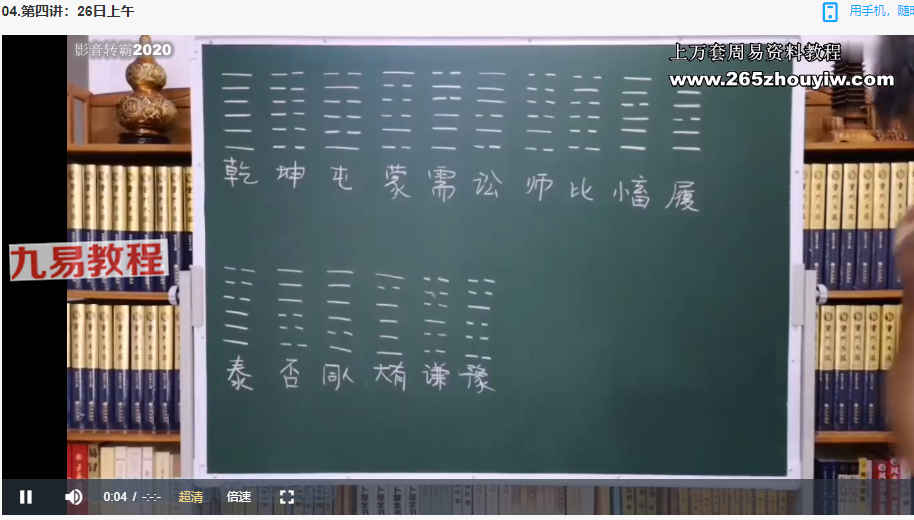 04.第四讲：26日上午
用手机，随时
影音转霸2020
上万套周易资料教程
www.265zhouyiw.com
乾 坤 屯 蒙 需 讼 师 比 小畜 履
九易教程
泰 否 同人 大有 谦 豫
0:04 / -:-:- 超清 倍速